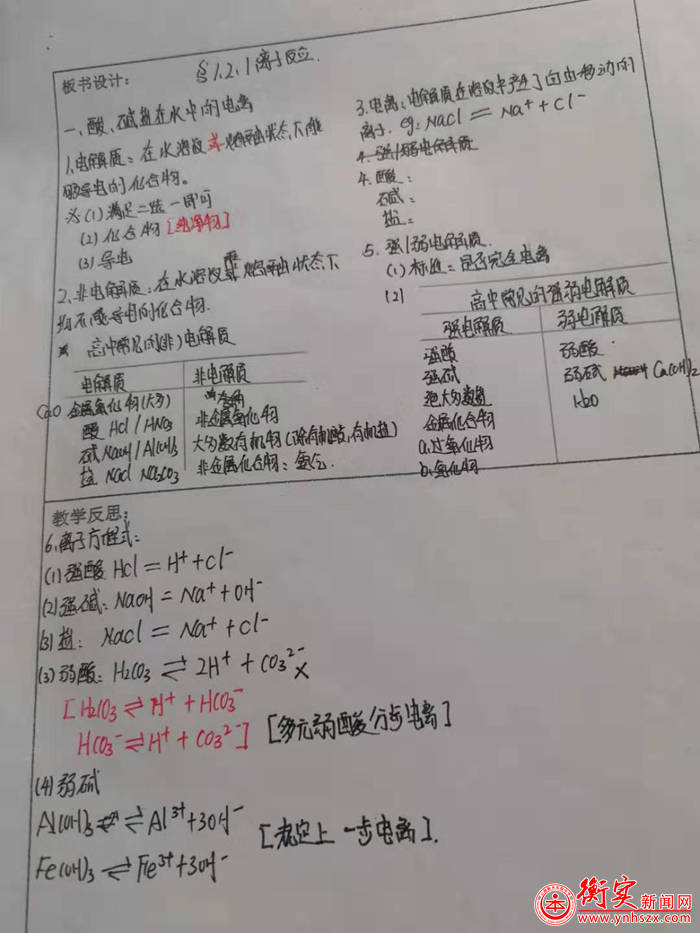 板书设计:
§1.2.1离子反应.
一、酸、碱、盐在水中的电离
1、电解质:在水溶液或熔融状态下能
够导电的化合物。
※(1)满足二选一即可
(2)化合物[纯净物]
(3)导电
2、非电解质:在水溶液和熔融状态下
均不能导电的化合物.
* 高中常见的(非)电解质
电解质 非电解质
CaO 金属氧化物(大多) 非金属氧化物
酸 HCl / HNO3 大多数有机物(除有机酸,有机盐)
碱 NaOH / Al(OH)3 非金属化合物:氨气.
盐 NaCl Na2CO3
3.电离:电解质在溶液中产生自由移动的
离子. eg: NaCl = Na⁺ + Cl⁻
4.强/弱电解质
4.酸:
碱:
盐:
5.强/弱电解质.
(1)标准:是否完全电离
(2) 高中常见的强弱电解质
强电解质 弱电解质
强酸 弱酸
强碱 弱碱 Ca(OH)2
绝大多数盐 H2O
金属化合物
a.过氧化物
b.氧化物
教学反思:
6.离子方程式:
(1)强酸 HCl = H⁺ + Cl⁻
(2)强碱: NaOH = Na⁺ + OH⁻
(3)盐: NaCl = Na⁺ + Cl⁻
(3)弱酸: H2CO3 ⇌ 2H⁺ + CO3²⁻ ×
[H2CO3 ⇌ H⁺ + HCO3⁻
HCO3⁻ ⇌ H⁺ + CO3²⁻] [多元弱酸分步电离]
(4)弱碱
Al(OH)3 ⇌ Al³⁺ + 3OH⁻
[规定上一步电离].
Fe(OH)3 ⇌ Fe³⁺ + 3OH⁻
衡实新闻网
www.ynhszx.com